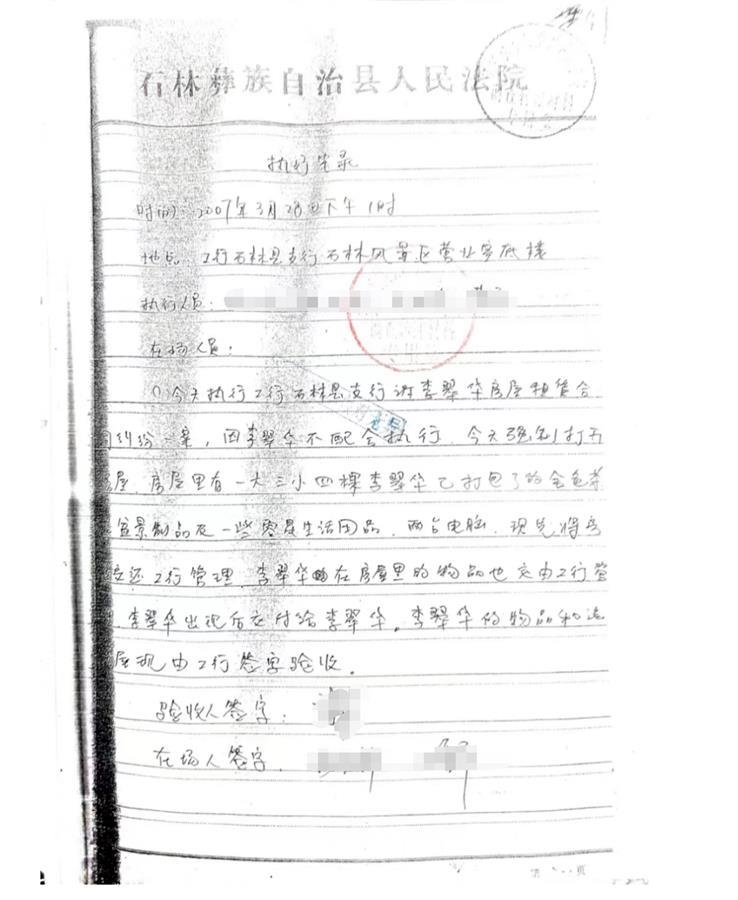 石林彝族自治县人民法院
执行笔录
时间：2007年3月28日下午1时
地点：工行石林县支行石林风景区营业室底楼
执行人员：
在场人员：
今天执行工行石林县支行诉李翠华房屋租赁合
纠纷一案，因李翠华不配合执行，今天强制打开
屋，房屋里有一大三小四棵李翠华已打包了的金色茶
盆景制品及一些零星生活用品，两台电脑，现先将房
还工行管理，李翠华在房屋里的物品也交由工行管
，李翠华出现后交付给李翠华。李翠华的物品和
屋现由工行签字验收。
验收人签字：
在场人签字：
第 页